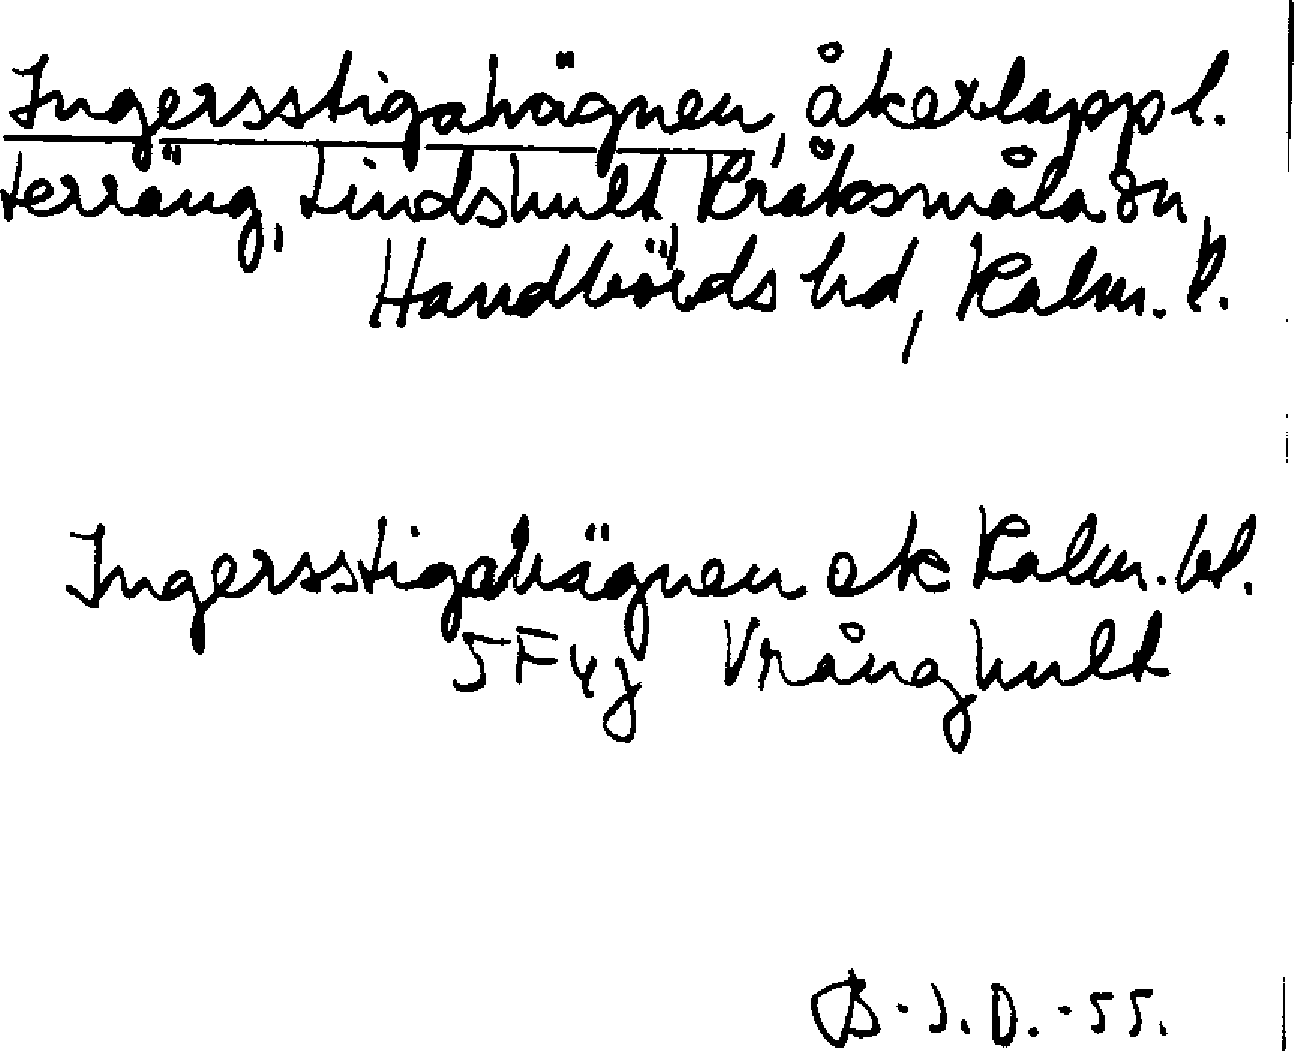 Ingersstigahägnen, åkerlapp l.
terräng, Lindshult, Kråksmåla sn,
Handbörds hd, Kalm. l.
Ingersstigahägnen ek Kalm. bl.
5F4j Vrånghult
B.J.D.-55.